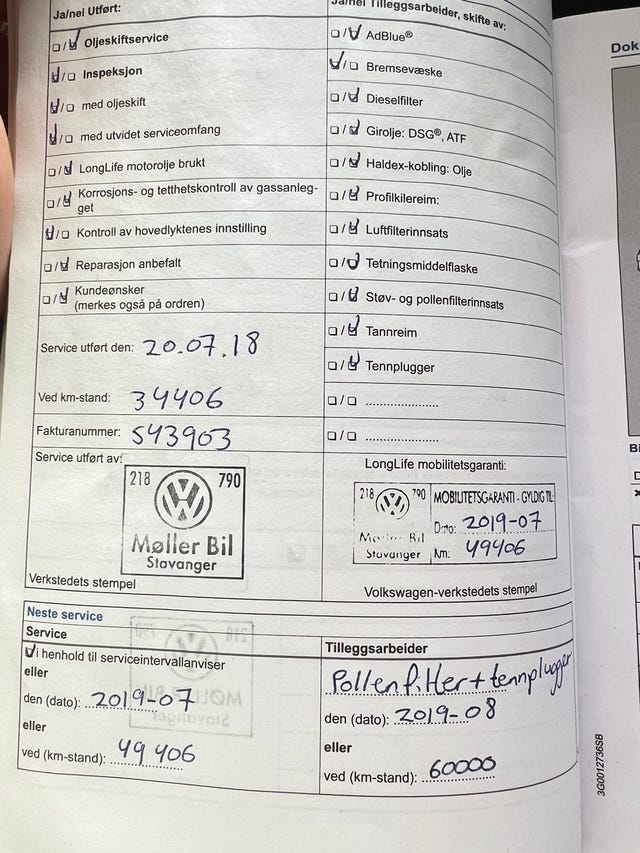 Ja/nei Utført:
☐/☑ Oljeskiftservice
☑/☐ Inspeksjon
☑/☐ med oljeskift
☑/☐ med utvidet serviceomfang
☐/☑ LongLife motorolje brukt
☐/☑ Korrosjons- og tetthetskontroll av gassanleg-
get
☑/☐ Kontroll av hovedlyktenes innstilling
☐/☑ Reparasjon anbefalt
☐/☑ Kundeønsker
(merkes også på ordren)
Service utført den: 20.07.18
Ved km-stand: 34406
Fakturanummer: 543903
Service utført av:
218 790
Møller Bil
Stavanger
Verkstedets stempel
Ja/nei Tilleggsarbeider, skifte av:
☐/☑ AdBlue®
☑/☐ Bremsevæske
☐/☑ Dieselfilter
☐/☑ Girolje: DSG®, ATF
☐/☑ Haldex-kobling: Olje
☐/☑ Profilkilereim:
☐/☑ Luftfilterinnsats
☐/☑ Tetningsmiddelflaske
☐/☑ Støv- og pollenfilterinnsats
☐/☑ Tannreim
☐/☑ Tennplugger
☐/☐ .....................
☐/☐ .....................
LongLife mobilitetsgaranti:
218 790 MOBILITETSGARANTI - GYLDIG TIL:
Dato: 2019-07
Stavanger Km: 49406
Volkswagen-verkstedets stempel
Neste service
Service
☑ i henhold til serviceintervallanviser
eller
den (dato): 2019-07
eller
ved (km-stand): 49 406
Tilleggsarbeider
Pollenfilter + tennplugger
den (dato): 2019-08
eller
ved (km-stand): 60000
3G0012736SB
Dok